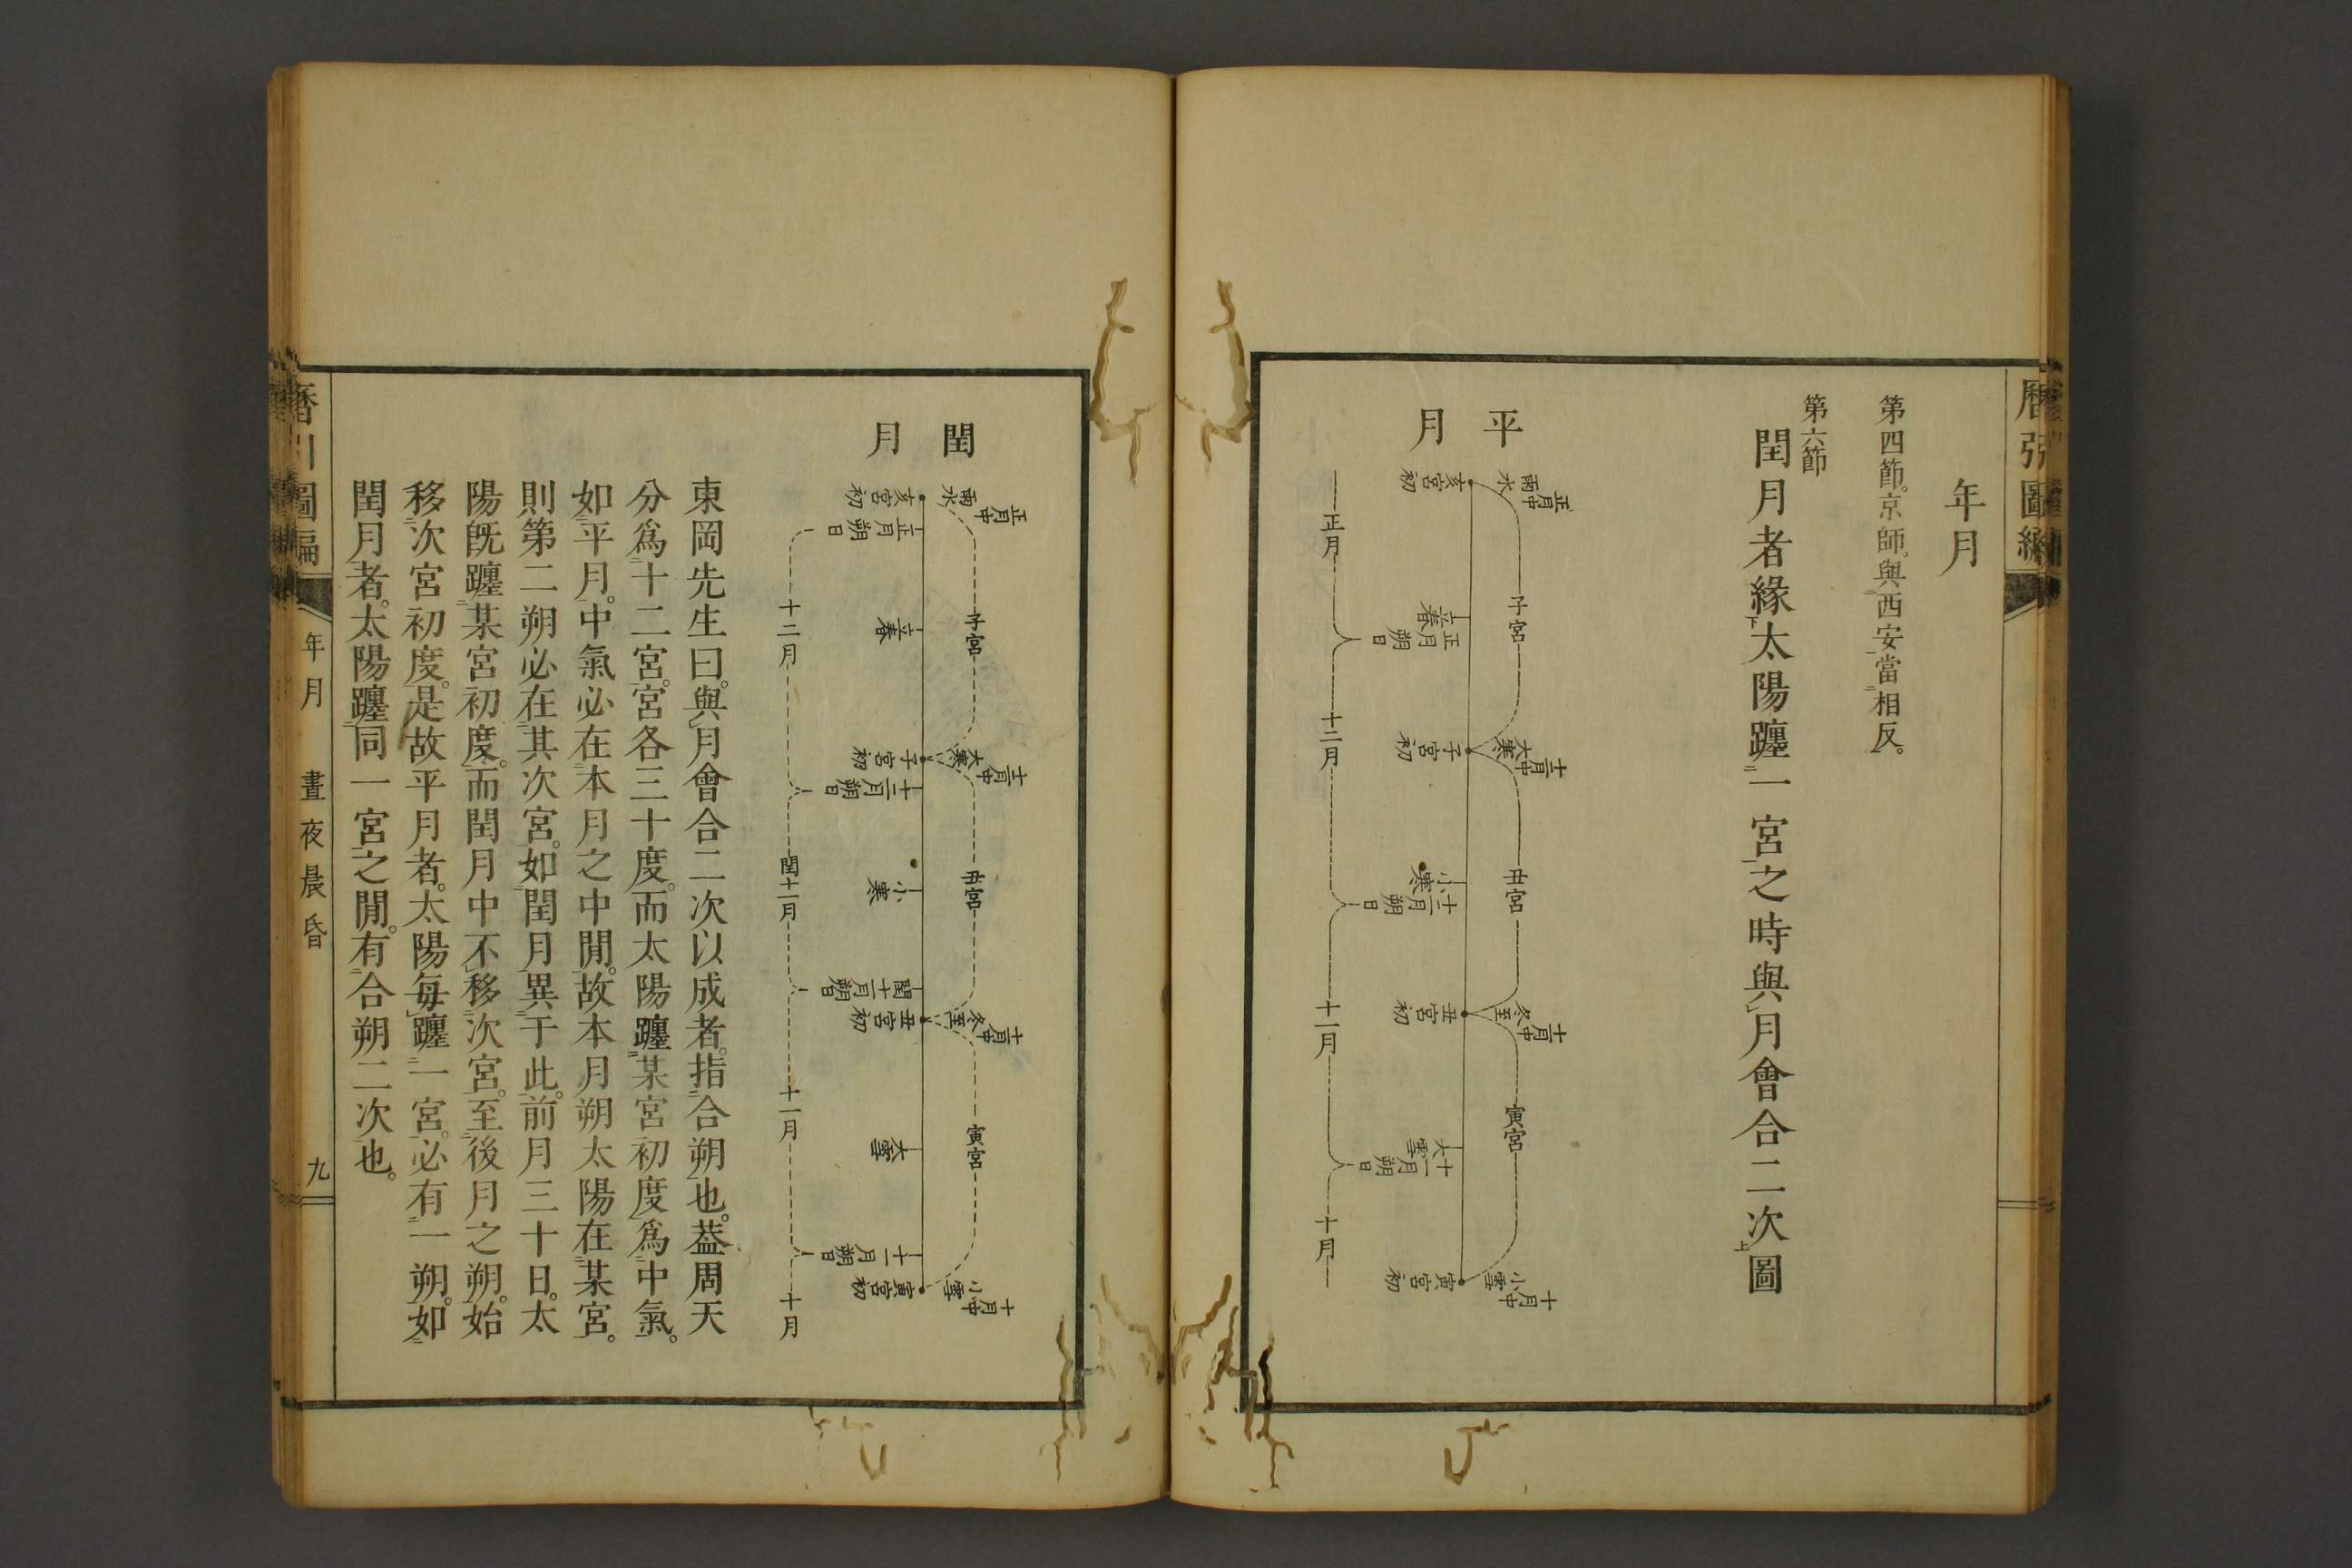 年月
第四節。京師。與西安當相反。
第六節
閏月者緣太陽躔一宮之時與月會合二次圖
平月
正月中
雨水
子宮
十二月中
大寒
丑宮
十一月中
冬至
寅宮
十月中
小雪
亥宮初
立春
正月朔日
子宮初
小寒
十二月朔日
丑宮初
大雪
十一月朔日
寅宮初
正月
十二月
十一月
十月
閏月
正月中
雨水
子宮
十二月中
大寒
丑宮
十一月中
冬至
寅宮
十月中
小雪
亥宮初
正月朔日
立春
子宮初
十二月朔日
小寒
閏十一月朔日
丑宮初
大雪
十一月朔日
寅宮初
十二月
閏十一月
十一月
十月
東岡先生曰。與月會合二次以成者。指合朔也。葢周天
分爲十二宮。宮各三十度。而太陽躔某宮初度爲中氣。
如平月。中氣必在本月之中閒。故本月朔太陽在某宮。
則第二朔必在其次宮。如閏月異于此。前月三十日。太
陽旣躔某宮初度。而閏月中不移次宮。至後月之朔。始
移次宮初度。是故平月者。太陽每躔一宮。必有一朔。如
閏月者。太陽躔同一宮之閒。有合朔二次也。
年月 晝夜晨昏
九